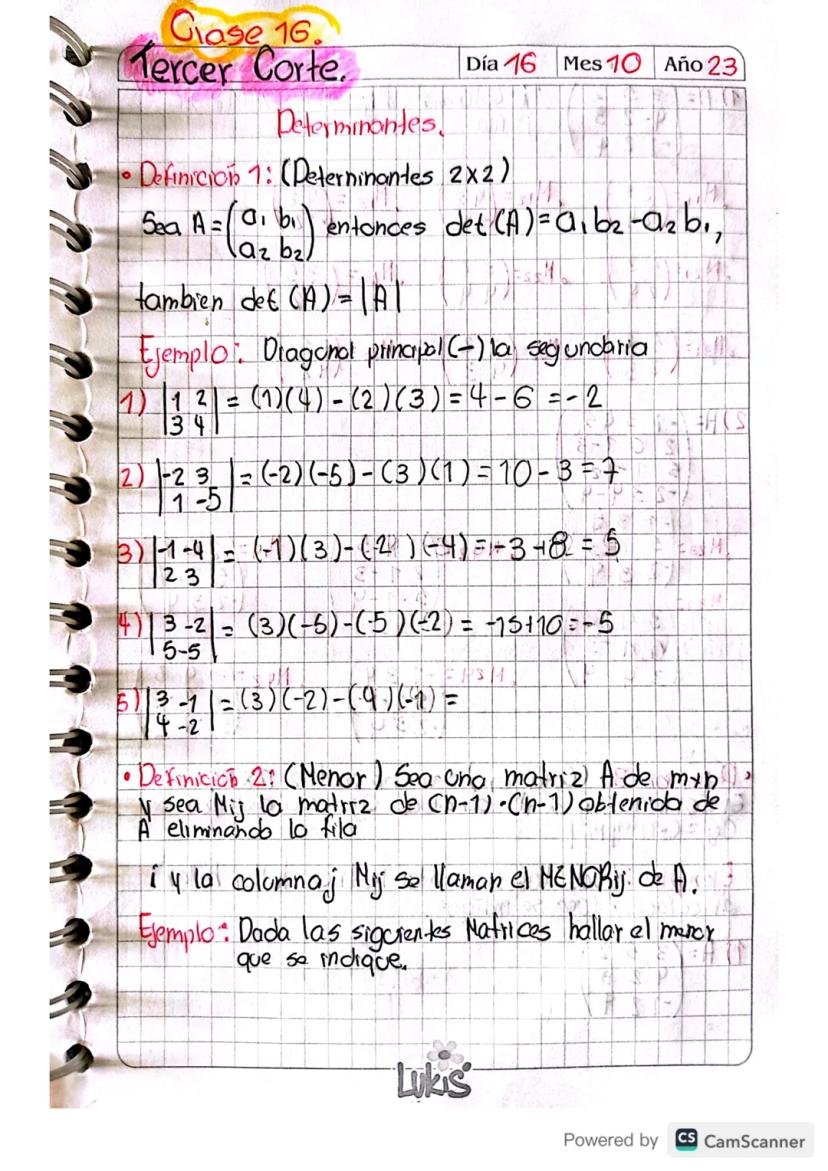 Clase 16.
Tercer Corte.
Día 16 Mes 10 Año 23
Determinantes.
• Definición 1: (Determinantes 2x2)
Sea A = (a₁ b₁ entonces det (A) = a₁b₂ - a₂b₁,
a₂ b₂)
tambien det (A) = |A|
Ejemplo: Diagonal principal (-) la segundaria
1) |1 2
3 4| = (1)(4) - (2)(3) = 4 - 6 = -2
2) |-2 3
1 -5| = (-2)(-5) - (3)(1) = 10 - 3 = 7
3) |-1 -4
2 3| = (-1)(3) - (2)(-4) = -3 + 8 = 5
4) |3 -2
5 -5| = (3)(-5) - (5)(-2) = -15 + 10 = -5
5) |3 -1
4 -2| = (3)(-2) - (4)(-1) =
• Definición 2: (Menor) Sea una matriz A de mxn,
y sea Mij la matriz de (n-1)•(n-1) obtenida de
A eliminando la fila
i y la columna j Mij se llaman el MENOR ij de A.
Ejemplo: Dada las siguientes Matrices hallar el menor
que se indique.
Lukis
Powered by CS CamScanner